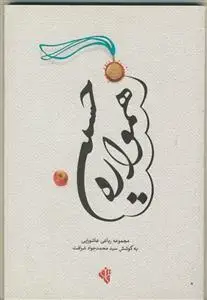 همواره حسین
مجموعه رباعی عاشورایی
به کوشش سید محمدجواد شرافت